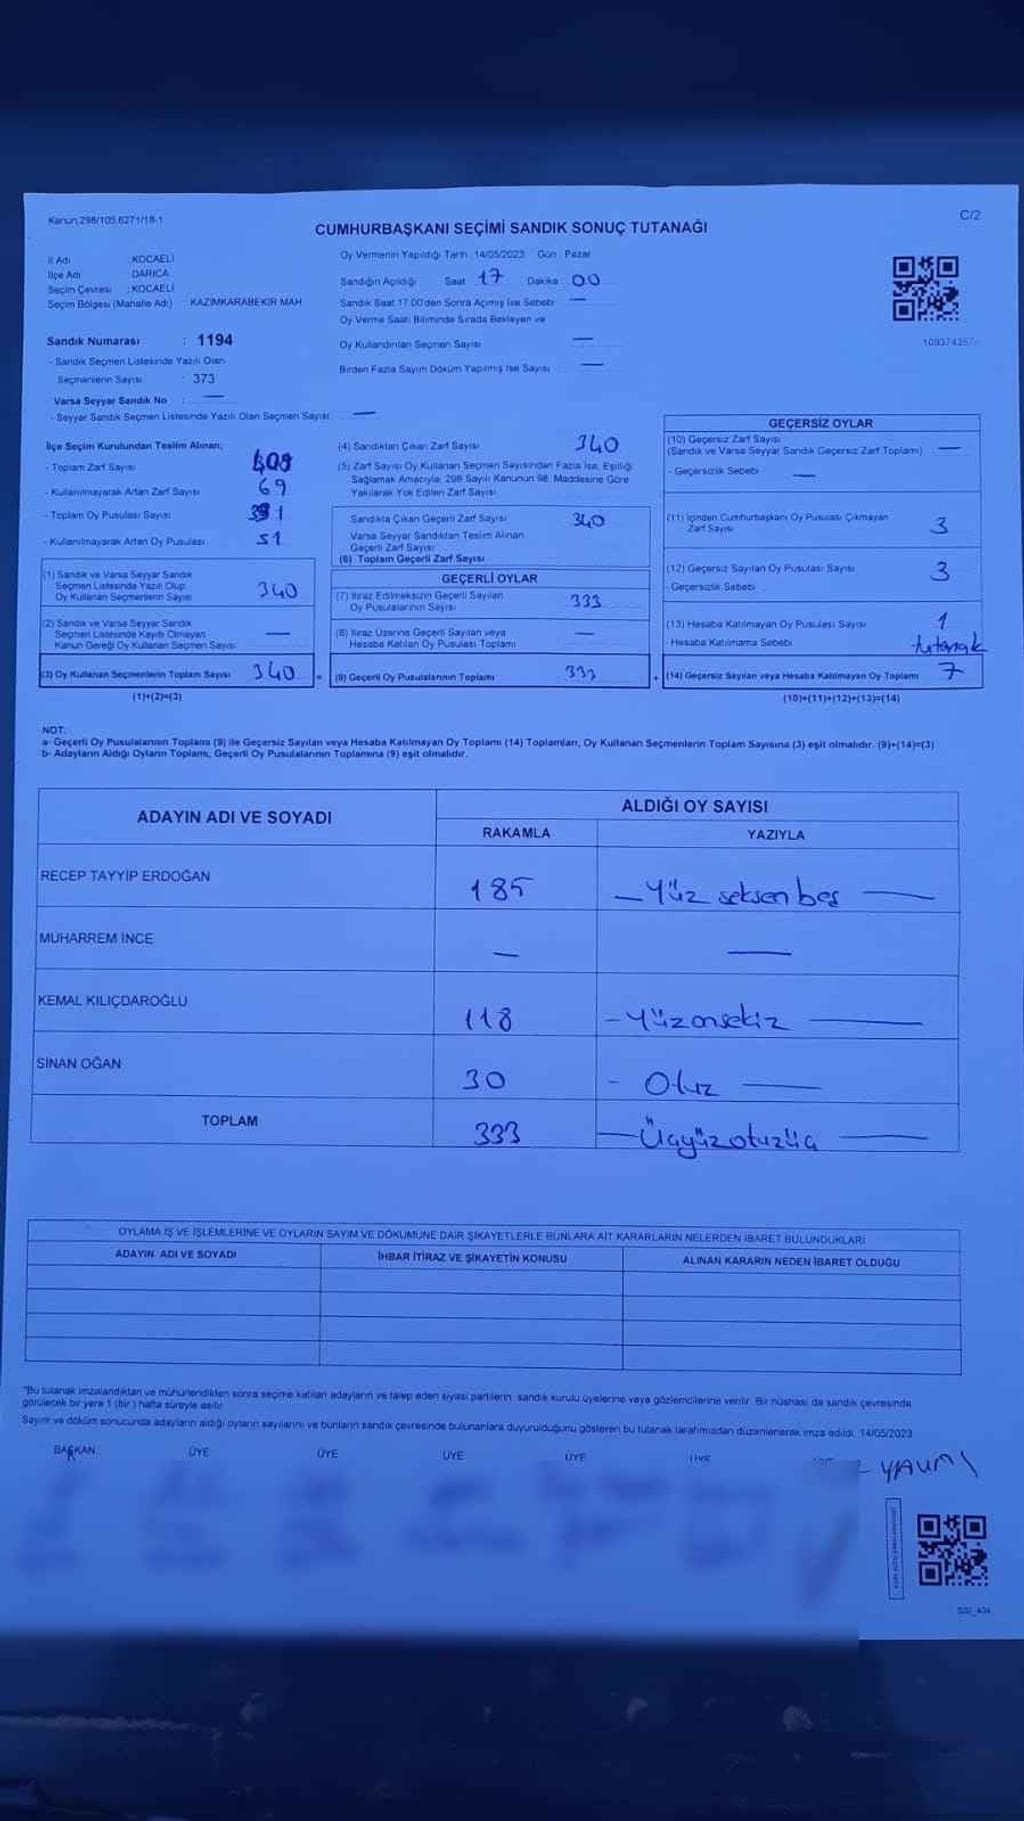 Kanun:298/105.6271/18-1
C/2
CUMHURBAŞKANI SEÇİMİ SANDIK SONUÇ TUTANAĞI
İl Adı : KOCAELİ
İlçe Adı : DARICA
Seçim Çevresi : KOCAELİ
Seçim Bölgesi (Mahalle Adı) : KAZIMKARABEKİR MAH
Sandık Numarası : 1194
- Sandık Seçmen Listesinde Yazılı Olan
Seçmenlerin Sayısı : 373
Varsa Seyyar Sandık No : —
- Seyyar Sandık Seçmen Listesinde Yazılı Olan Seçmen Sayısı —
Oy Vermenin Yapıldığı Tarih : 14/05/2023 Gün : Pazar
Sandığın Açıldığı Saat 17 Dakika : 00
Sandık Saat 17.00'den Sonra Açılmış İse Sebebi —
Oy Verme Saati Bitiminde Sırada Bekleyen ve
Oy Kullandırılan Seçmen Sayısı —
Birden Fazla Sayım Döküm Yapılmış İse Sayısı —
İlçe Seçim Kurulundan Teslim Alınan;
- Toplam Zarf Sayısı 409
- Kullanılmayarak Artan Zarf Sayısı 69
- Toplam Oy Pusulası Sayısı 391
- Kullanılmayarak Artan Oy Pusulası 51
(1) Sandık ve Varsa Seyyar Sandık
Seçmen Listesinde Yazılı Olup
Oy Kullanan Seçmenlerin Sayısı 340
(2) Sandık ve Varsa Seyyar Sandık
Seçmen Listesinde Kayıtlı Olmayan
Kanun Gereği Oy Kullanan Seçmen Sayısı —
(3) Oy Kullanan Seçmenlerin Toplam Sayısı 340 =
(1)+(2)=(3)
(4) Sandıktan Çıkan Zarf Sayısı 340
(5) Zarf Sayısı Oy Kullanan Seçmen Sayısından Fazla İse, Eşitliği
Sağlamak Amacıyla; 298 Sayılı Kanunun 98. Maddesine Göre
Yakılarak Yok Edilen Zarf Sayısı
Sandıkta Çıkan Geçerli Zarf Sayısı 340
Varsa Seyyar Sandıktan Teslim Alınan
Geçerli Zarf Sayısı
(6) Toplam Geçerli Zarf Sayısı
GEÇERLİ OYLAR
(7) İtiraz Edilmeksizin Geçerli Sayılan
Oy Pusulalarının Sayısı 333
(8) İtiraz Üzerine Geçerli Sayılan veya
Hesaba Katılan Oy Pusulası Toplamı —
(9) Geçerli Oy Pusulalarının Toplamı 333 +
GEÇERSİZ OYLAR
(10) Geçersiz Zarf Sayısı
(Sandık ve Varsa Seyyar Sandık Geçersiz Zarf Toplamı) —
- Geçersizlik Sebebi —
(11) İçinden Cumhurbaşkanı Oy Pusulası Çıkmayan
Zarf Sayısı 3
(12) Geçersiz Sayılan Oy Pusulası Sayısı 3
- Geçersizlik Sebebi
(13) Hesaba Katılmayan Oy Pusulası Sayısı 1
- Hesaba Katılmama Sebebi tutanak
(14) Geçersiz Sayılan veya Hesaba Katılmayan Oy Toplamı 7
(10)+(11)+(12)+(13)=(14)
NOT:
a- Geçerli Oy Pusulalarının Toplamı (9) ile Geçersiz Sayılan veya Hesaba Katılmayan Oy Toplamı (14) Toplamları, Oy Kullanan Seçmenlerin Toplam Sayısına (3) eşit olmalıdır. (9)+(14)=(3)
b- Adayların Aldığı Oyların Toplamı, Geçerli Oy Pusulalarının Toplamına (9) eşit olmalıdır.
ADAYIN ADI VE SOYADI
ALDIĞI OY SAYISI
RAKAMLA YAZIYLA
RECEP TAYYİP ERDOĞAN 185 — Yüz seksen beş —
MUHARREM İNCE — —
KEMAL KILIÇDAROĞLU 118 - Yüzonsekiz —
SİNAN OĞAN 30 - Otuz —
TOPLAM 333 — Üçyüzotuzüç —
OYLAMA İŞ VE İŞLEMLERİNE VE OYLARIN SAYIM VE DÖKÜMÜNE DAİR ŞİKAYETLERLE BUNLARA AİT KARARLARIN NELERDEN İBARET BULUNDUKLARI
ADAYIN ADI VE SOYADI İHBAR İTİRAZ VE ŞİKAYETİN KONUSU ALINAN KARARIN NEDEN İBARET OLDUĞU
"Bu tutanak imzalandıktan ve mühürlendikten sonra seçime katılan adayların ve talep eden siyasi partilerin sandık kurulu üyelerine veya gözlemcilerine verilir. Bir nüshası da sandık çevresinde
görülecek bir yere 1 (bir) hafta süreyle asılır.
Sayım ve döküm sonucunda adayların aldığı oyların sayılarını ve bunların sandık çevresinde bulunanlara duyurulduğunu gösteren bu tutanak tarafımızdan düzenlenerek imza edildi. 14/05/2023
BAŞKAN ÜYE ÜYE ÜYE ÜYE ÜYE